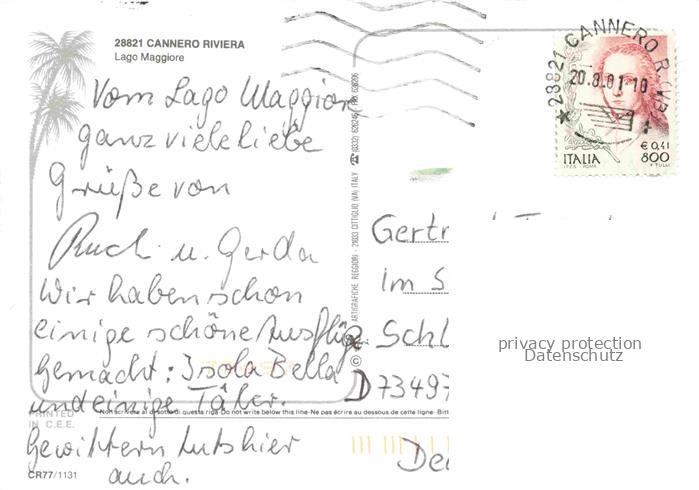 28821 CANNERO RIVIERA
Lago Maggiore
Vom Lago Maggiore
ganz viele liebe
Grüße von
Ruch u. Gerda
Wir haben schon
einige schöne Ausflüge
gemacht: Isola Bella
und einige Täler.
Gewittern tuts hier
auch.
PRINTED
IN C.E.E.
CR77/1131
ARTIGRAFICHE REGGIORI - 21033 CITTIGLIO (VA) ITALY
Non scrivere al disotto di questa riga-Do not write below this line-Ne pas écrire au dessous de cette ligne- Bitt
28821 CANNERO R.
20.8.01-10
ITALIA
€ 0,41
800
Gertr
im S
Schl
D 73497
De
privacy protection
Datenschutz